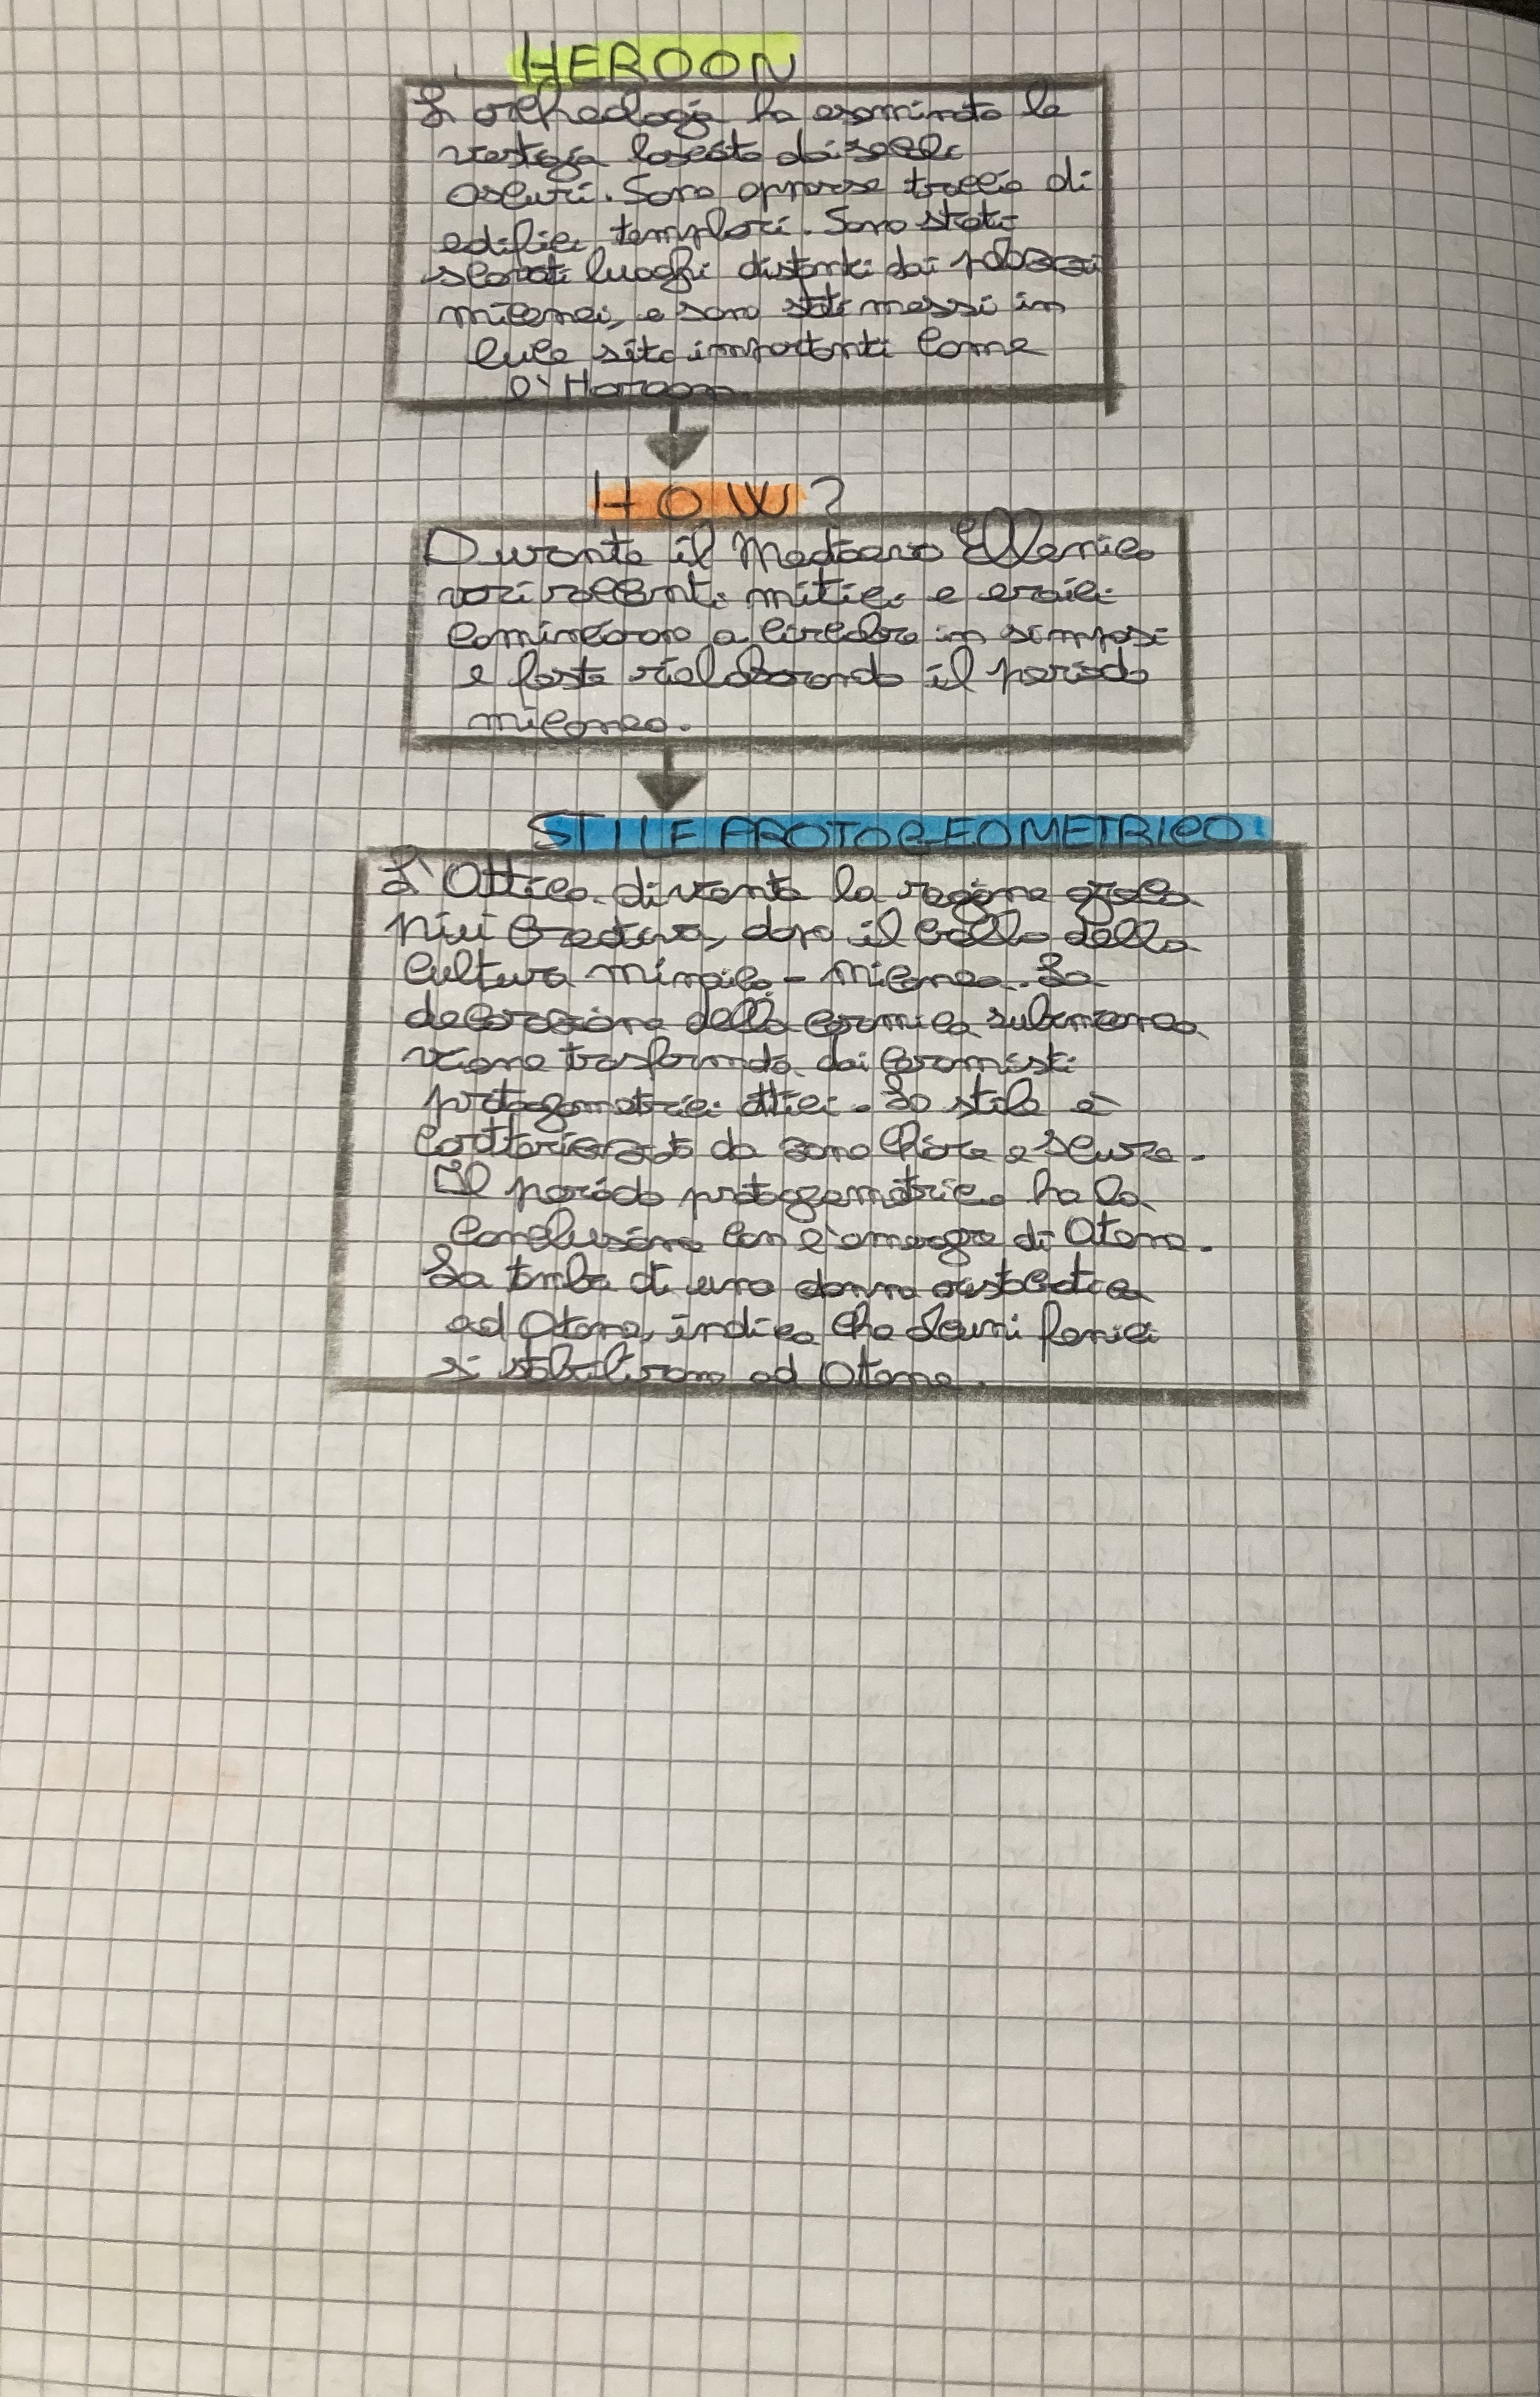 HEROON
L'archeologia ha esaminato le
vestigia lasciate dai secoli
oscuri. Sono apparse tracce di
edifici templari. Sono stati
scavati luoghi distanti dai palazzi
micenei, e sono stati messi in
luce siti importanti come
l'Heroon.
HOW?
Durante il Medioevo Ellenico
vari racconti mitici e eroici
cominciarono a circolare in simposi
e feste rielaborando il periodo
miceneo.
STILE PROTOGEOMETRICO
L'Attica diventa la regione greca
più creativa, dopo il crollo della
cultura minoico-micenea. La
decorazione della ceramica submicenea
viene trasformata dai ceramisti
protogeometrici attici. Lo stile è
caratterizzato da zone chiare e scure.
Il periodo protogeometrico ha la
conclusione con l'emergere di Atene.
La tomba di una donna aristocratica
ad Atene, indica che alcuni fenici
si stabilirono ad Atene.